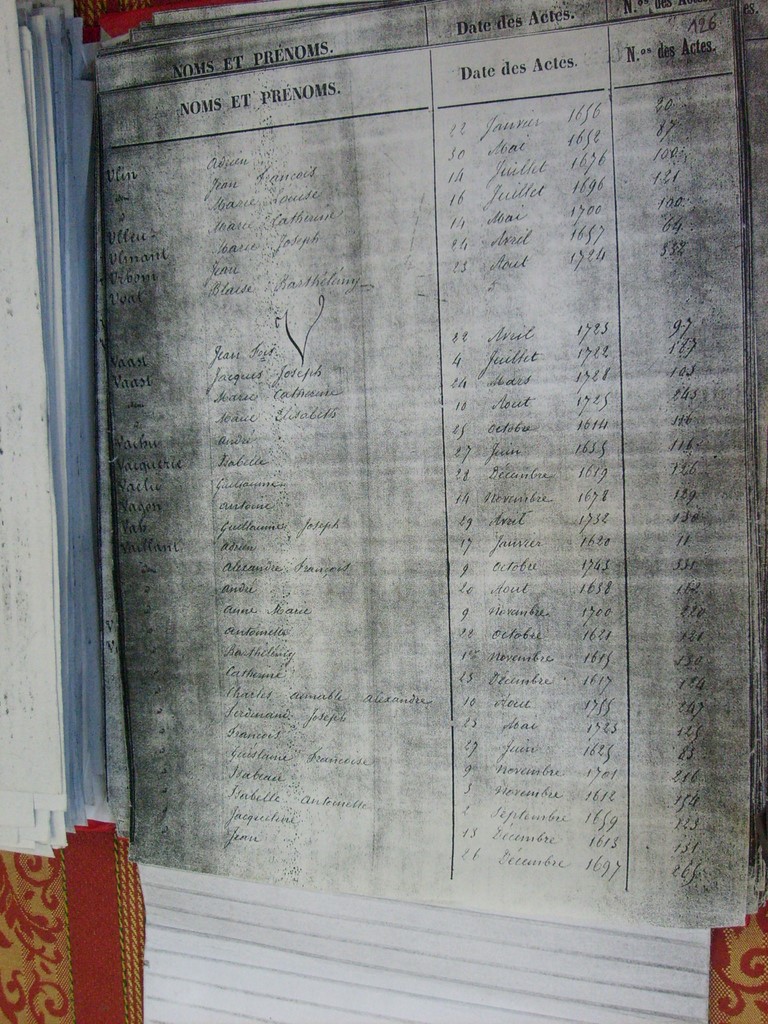 NOMS ET PRÉNOMS. Date des Actes. N.os des Actes.
126
NOMS ET PRÉNOMS. Date des Actes. N.os des Actes.
Ulin Adrien 22 Janvier 1656 20
" Jean François 30 Mai 1652 87
" Marie Louise 14 Juillet 1676 100
Marie Catherine 16 Juillet 1696 121
Ulmant Marie Joseph 14 Mai 1700 100
Jean 24 Avril 1657 64
Blaise Barthélemy 23 Aout 1724 332
V
Vaast Jean Fois 22 Avril 1723 97
Vaast Jacques Joseph 4 Juillet 1722 187
" Marie Catherine 24 Mars 1728 103
" Marie Elisabeth 10 Aout 1725 243
Vachu André 25 Octobre 1614 116
Vacquerie Isabelle 27 Juin 1635 116
Guillaume 28 Décembre 1619 126
Vagon Antoine 14 Novembre 1678 129
Guillaume Joseph 29 Avril 1732 130
Vaillant Adrien 17 Janvier 1620 11
" Alexandre François 9 Octobre 1743 331
" André 20 Aout 1638 162
" Anne Marie 9 Novembre 1700 220
" Antoinette 22 Octobre 1621 121
" Barthélemy 1er Novembre 1615 130
" Catherine 25 Décembre 1617 124
" Charles Aimable Alexandre 10 Aout 1755 247
" Ferdinand Joseph 23 Mai 1723 125
" François 27 Juin 1625 83
" Guislaine Françoise 9 Novembre 1701 216
" Isabeau 3 Novembre 1612 154
" Isabelle Antoinette 2 Septembre 1659 223
" Jacqueline 13 Décembre 1613 131
" Jean 26 Décembre 1697 265